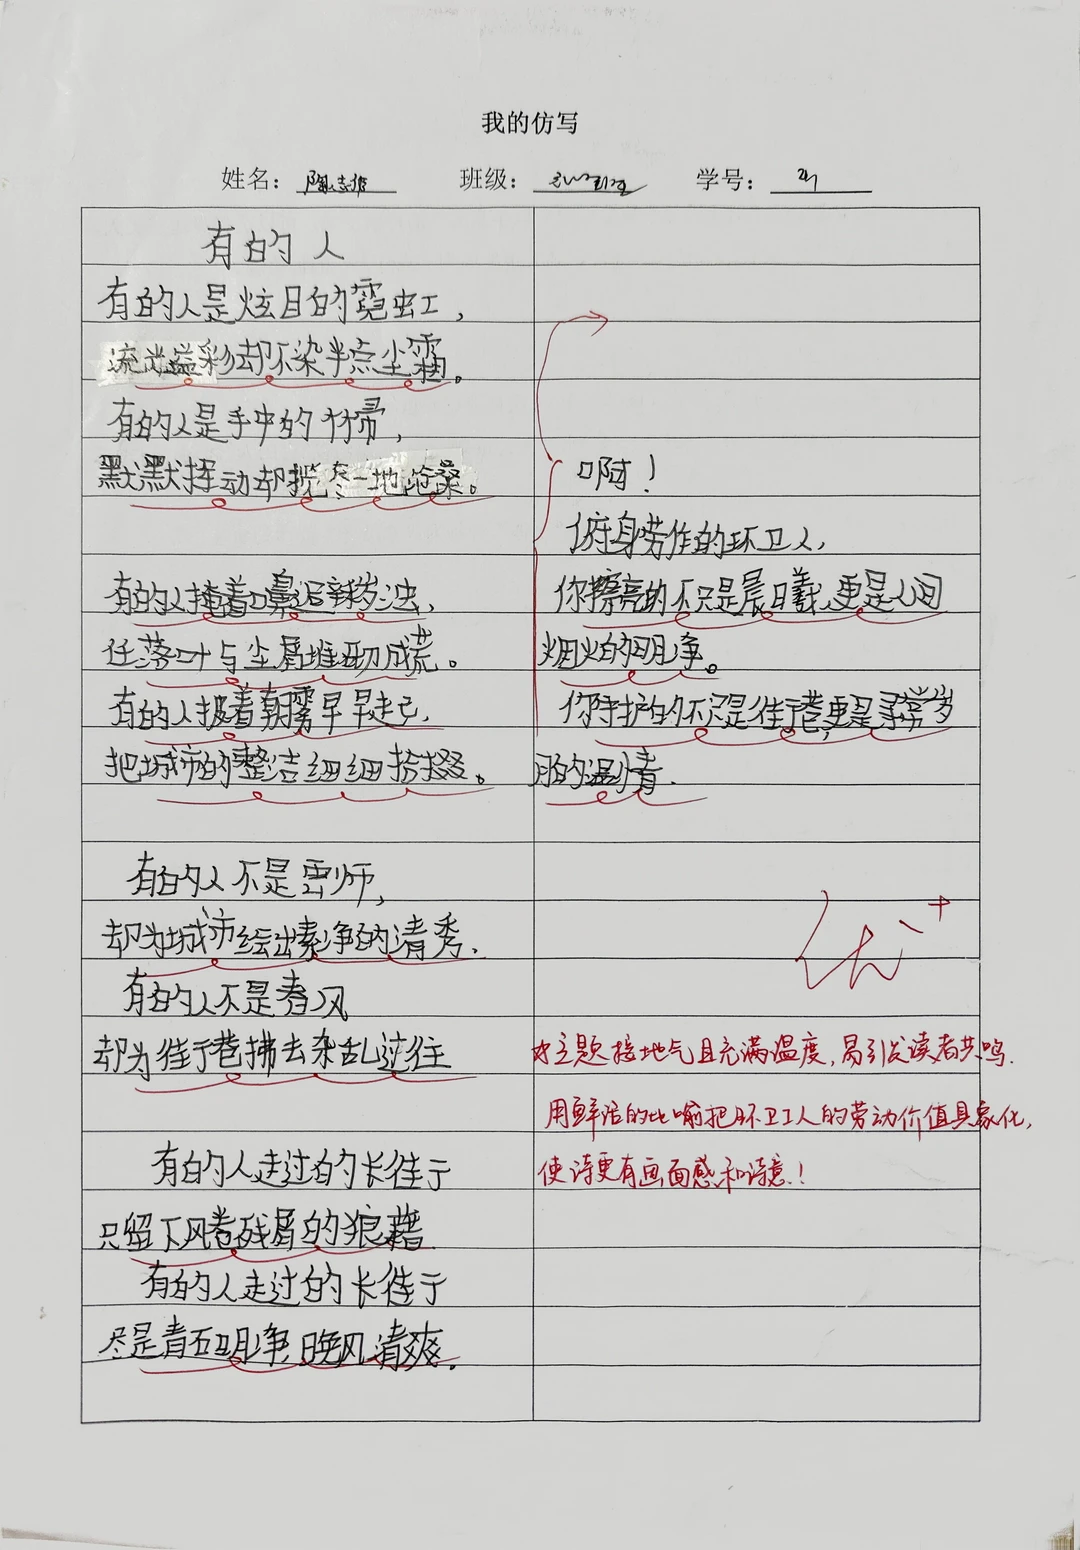 我的仿写
姓名： 班级： 学号：
有的人
有的人是炫目的霓虹，
流光溢彩却不染半点尘霜。
有的人是手中的竹帚，
默默挥动却揽尽一地沧桑。
有的人掩着口鼻远辞秽浊，
任落叶与尘屑堆砌成荒。
有的人披着朝雾早早走已，
把城市的整洁细细拾掇。
有的人不是画师，
却为城市绘出素净的清秀.
有的人不是春风
却为街巷拂去杂乱过往
有的人走过的长街
只留下风卷残屑的狼藉
有的人走过的长街
尽是青石明净，晚风清爽。
啊！
俯身劳作的环卫人，
你擦亮的不只是晨曦，更是人间
烟火的明净。
你守护的不只是街巷，更是寻常岁
月的温情.
优+
主题接地气且充满温度，易引发读者共鸣.
用鲜活的比喻把环卫工人的劳动价值具象化，
使诗更有画面感和诗意！